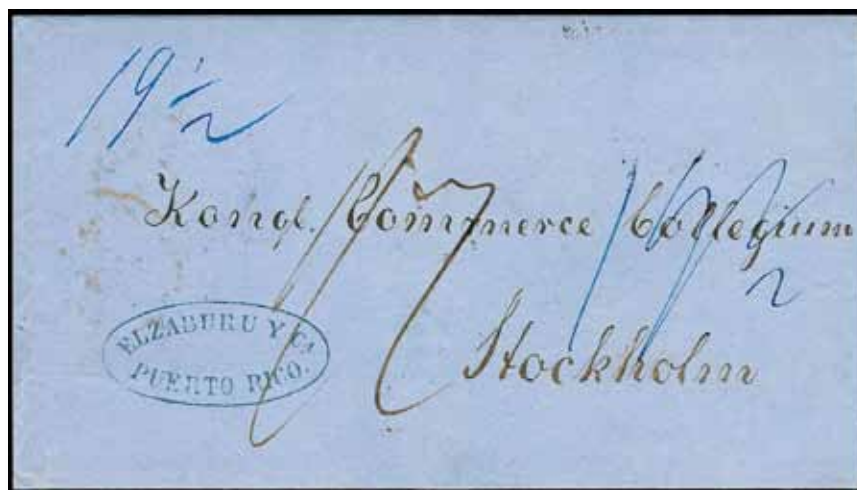 19 1/2
Kongl. Commerce Collegium
Stockholm
ELZABURU Y Cª
PUERTO RICO.